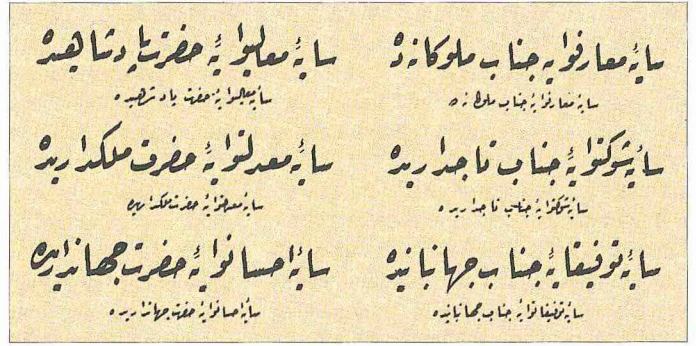 سایۀ معارفوایۀ جناب ملوکانه ده
سایۀ معارفوایۀ جناب ملوکانه ده
سایۀ شوکتوایۀ جناب تاجداریده
سایۀ شوکتوایۀ جناب تاجداریده
سایۀ توفیقوایۀ جناب جهانبانیده
سایۀ توفیقوایۀ جناب جهانبانیده
سایۀ معالیوایۀ حضرت پادشاهیده
سایۀ معالیوایۀ حضرت پادشاهیده
سایۀ معدلتوایۀ حضرت ملکداریده
سایۀ معدلتوایۀ حضرت ملکداریده
سایۀ احسانوایۀ حضرت جهانداریده
سایۀ احسانوایۀ حضرت جهانداریده